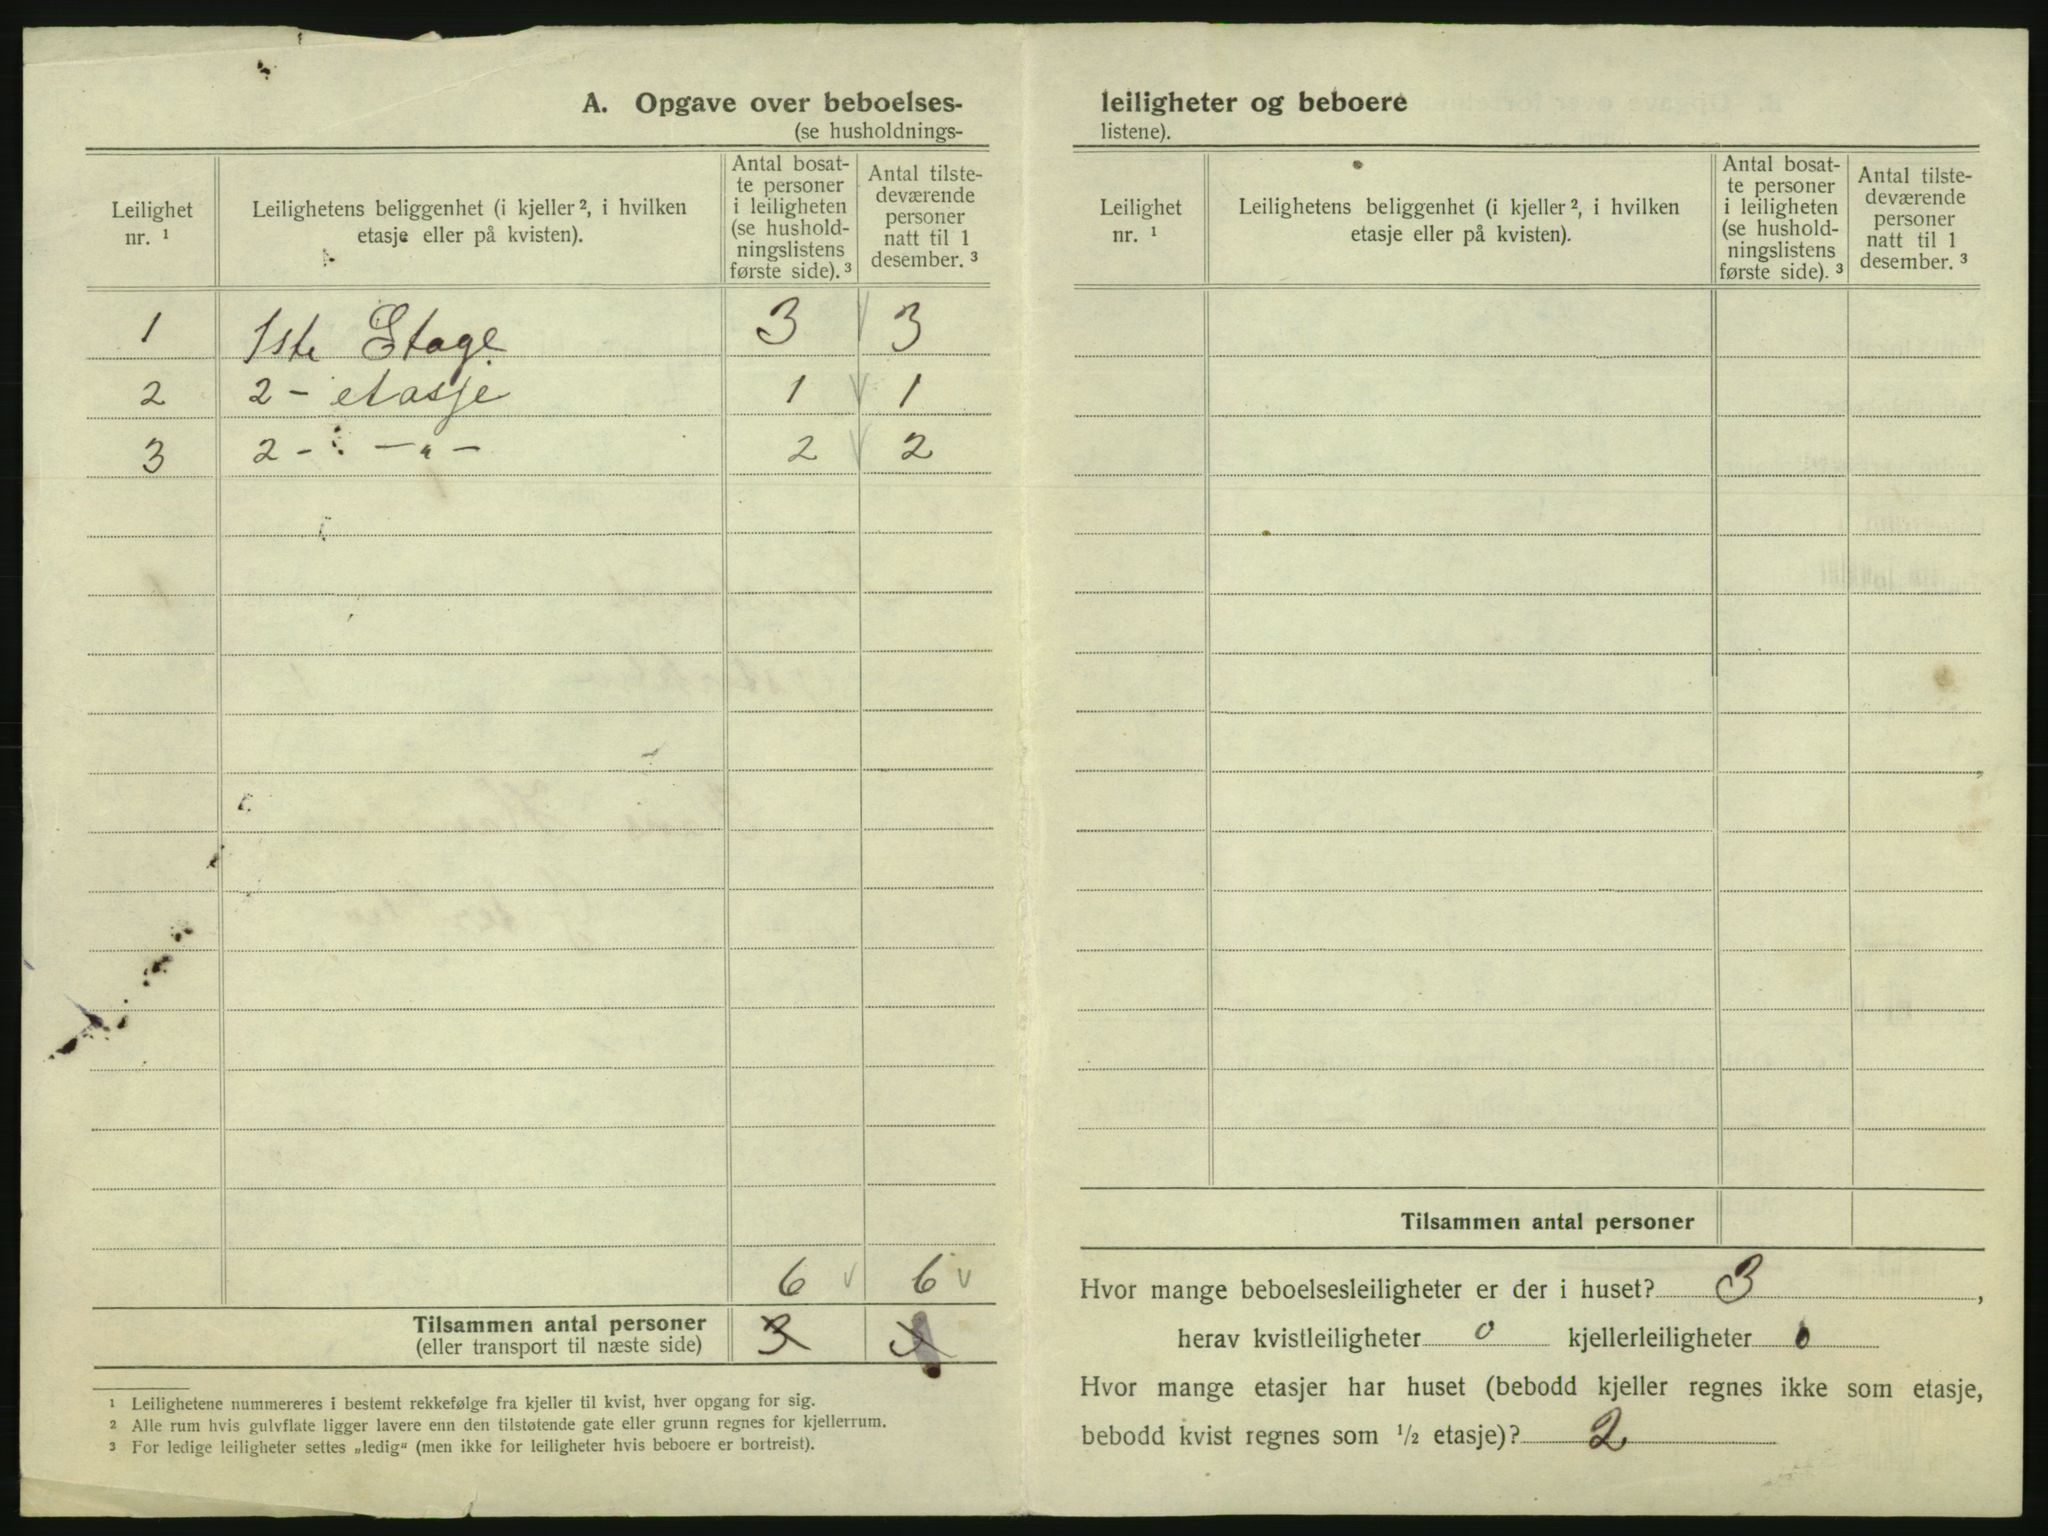 A. Opgave over beboelses-
(se husholdnings-
Leilighet
nr. ¹
Leilighetens beliggenhet (i kjeller ², i hvilken
etasje eller på kvisten).
Antal bosat-
te personer
i leiligheten
(se hushold-
ningslistens
første side). ³
Antal tilste-
deværende
personer
natt til 1
desember. ³
1 1ste Etage. 3 3
2 2 - etasje 1 1
3 2 - - „ - 2 2
6 6
Tilsammen antal personer 3
(eller transport til næste side)
¹ Leilighetene nummereres i bestemt rekkefølge fra kjeller til kvist, hver opgang for sig.
² Alle rum hvis gulvflate ligger lavere enn den tilstøtende gate eller grunn regnes for kjellerrum.
³ For ledige leiligheter settes „ledig“ (men ikke for leiligheter hvis beboere er bortreist).
leiligheter og beboere
listene).
Leilighet
nr. ¹
Leilighetens beliggenhet (i kjeller ², i hvilken
etasje eller på kvisten).
Antal bosat-
te personer
i leiligheten
(se hushold-
ningslistens
første side). ³
Antal tilste-
deværende
personer
natt til 1
desember. ³
Tilsammen antal personer
Hvor mange beboelsesleiligheter er der i huset? 3 ,
herav kvistleiligheter 0 kjellerleiligheter 0
Hvor mange etasjer har huset (bebodd kjeller regnes ikke som etasje,
bebodd kvist regnes som ½ etasje)? 2